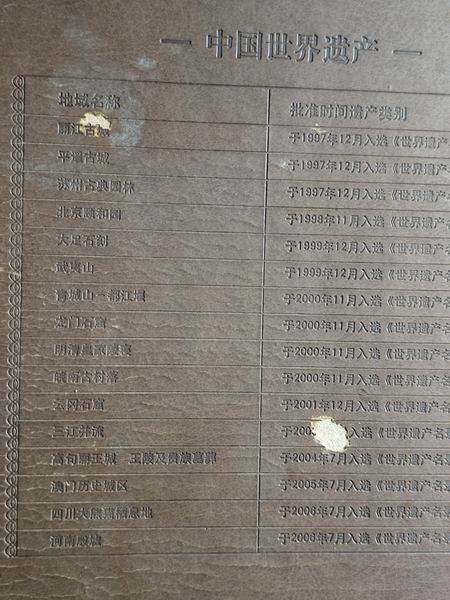 — 中国世界遗产 —
地域名称 批准时间遗产类别
丽江古城 于1997年12月入选《世界遗产
平遥古城 于1997年12月入选《世界遗产
苏州古典园林 于1997年12月入选《世界遗产
北京颐和园 于1998年11月入选《世界遗产
大足石刻 于1999年12月入选《世界遗产
武夷山 于1999年12月入选《世界遗产
青城山－都江堰 于2000年11月入选《世界遗产
龙门石窟 于2000年11月入选《世界遗产
明清皇家陵寝 于2000年11月入选《世界遗产名
皖南古村落 于2000年11月入选《世界遗产名
云冈石窟 于2001年12月入选《世界遗产名
三江并流 于200 月入选《世界遗产名
高句丽王城 王陵及贵族墓葬 于2004年7月入选《世界遗产名
澳门历史城区 于2005年7月入选《世界遗产名
四川大熊猫栖息地 于2006年7月入选《世界遗产名
河南殷墟 于2006年7月入选《世界遗产名